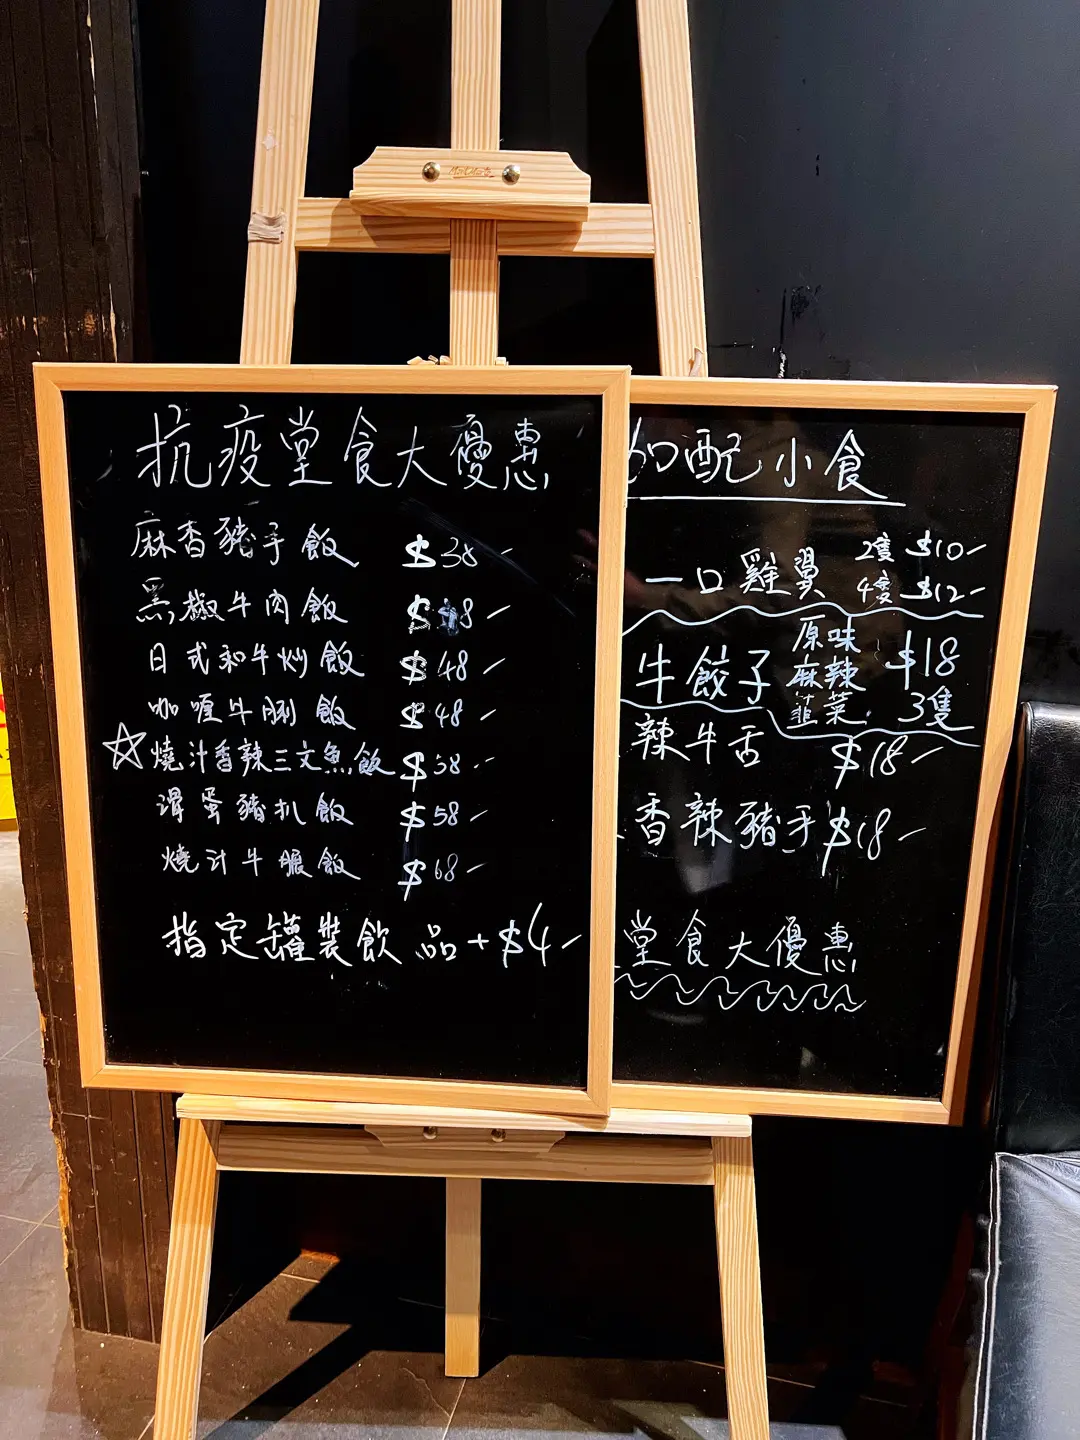 抗疫堂食大優惠
麻香豬手飯 $38-
黑椒牛肉飯 $48-
日式和牛炒飯 $48-
咖喱牛脷飯 $48-
☆燒汁香辣三文魚飯 $58-
滑蛋豬扒飯 $58-
燒汁牛脹飯 $68-
指定罐裝飲品+$4-
加配小食
一口雞翼 2隻 $10-
4隻 $12-
牛餃子 原味 麻辣 韮菜 $18 3隻
辣牛舌 $18-
香辣豬手 $18-
堂食大優惠